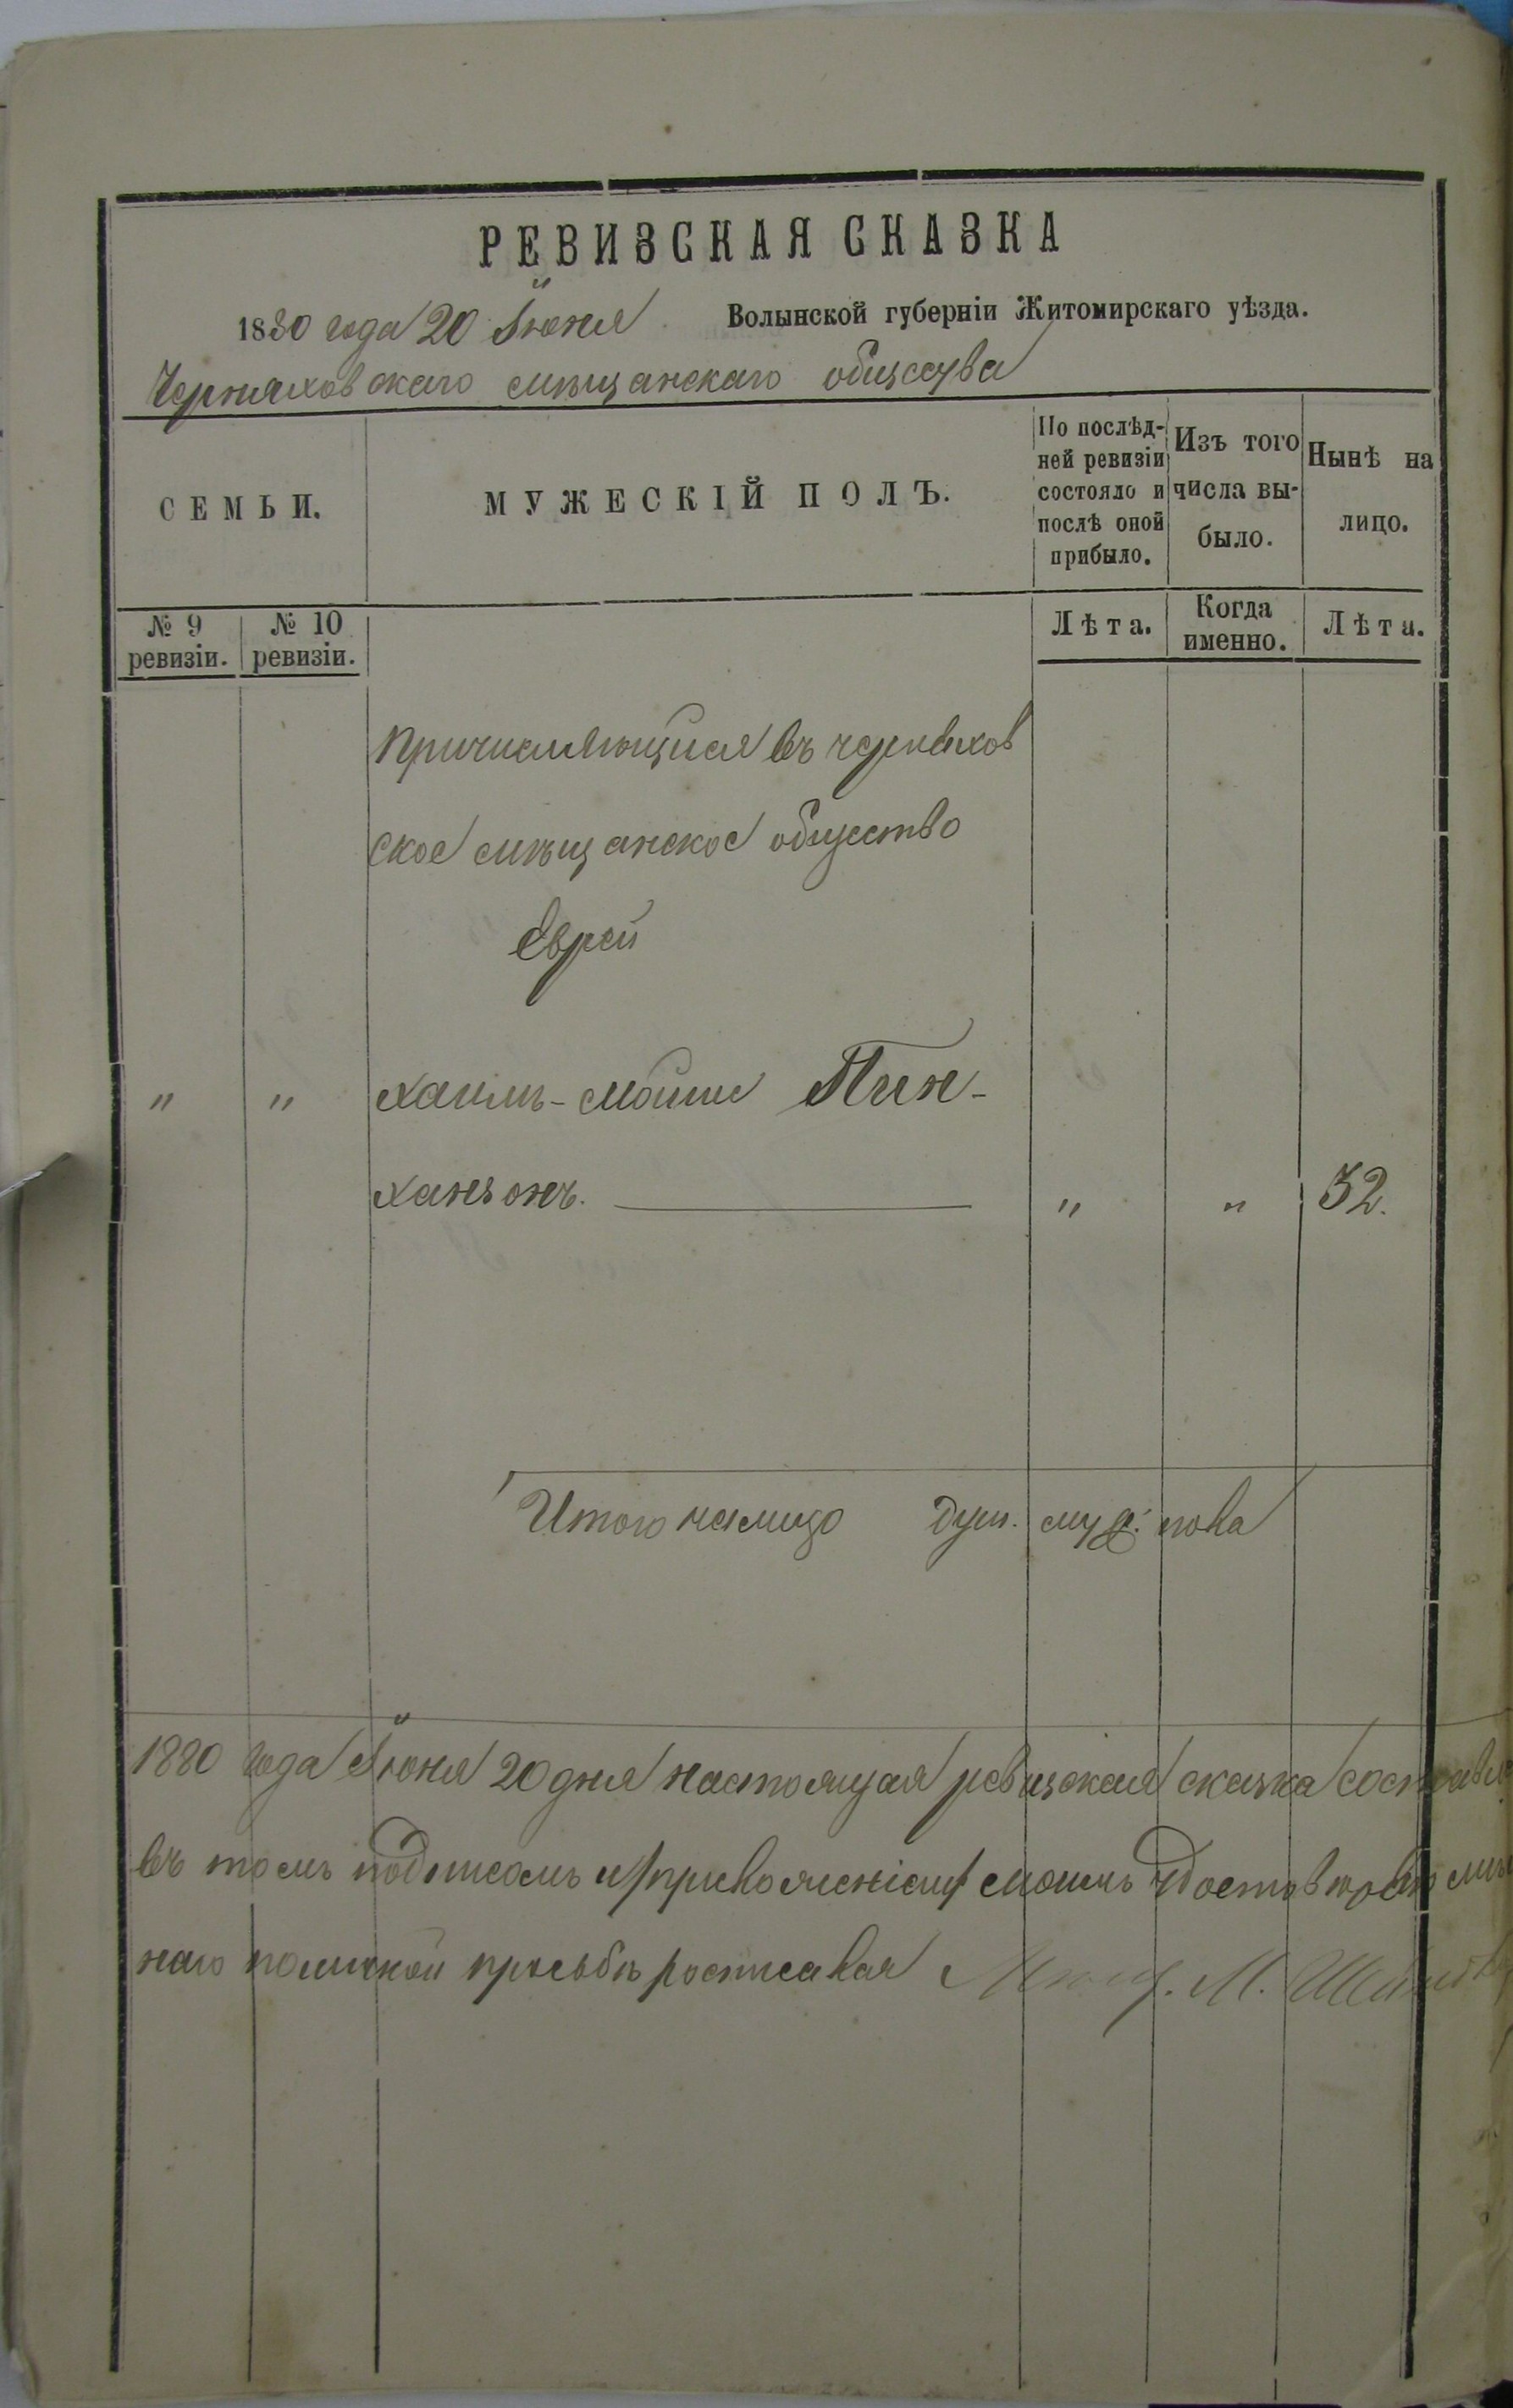 РЕВИЗСКАЯ СКАЗКА
1880 года 20 Іюня Волынской губерніи Житомирскаго уѣзда.
Черняховскаго мѣщанскаго общества
СЕМЬИ.
МУЖЕСКІЙ ПОЛЪ.
По послѣд-
ней ревизіи
состояло и
послѣ оной
прибыло.
Изъ того
числа вы-
было.
Нынѣ на
лицо.
№ 9
ревизіи.
№ 10
ревизіи.
Лѣта.
Когда
именно.
Лѣта.
Причисляющійся въ Черняхов
ское мѣщанское общество
Еврей
" " Хаимъ-Мошко Пин-
ханзонъ. " " 32.
Итого налицо душ. муж. пола
1880 года Іюня 20 дня настоящая ревизская сказка
въ томъ подписомъ и приложеніемъ
наго по личной просьбѣ росписался М. М.